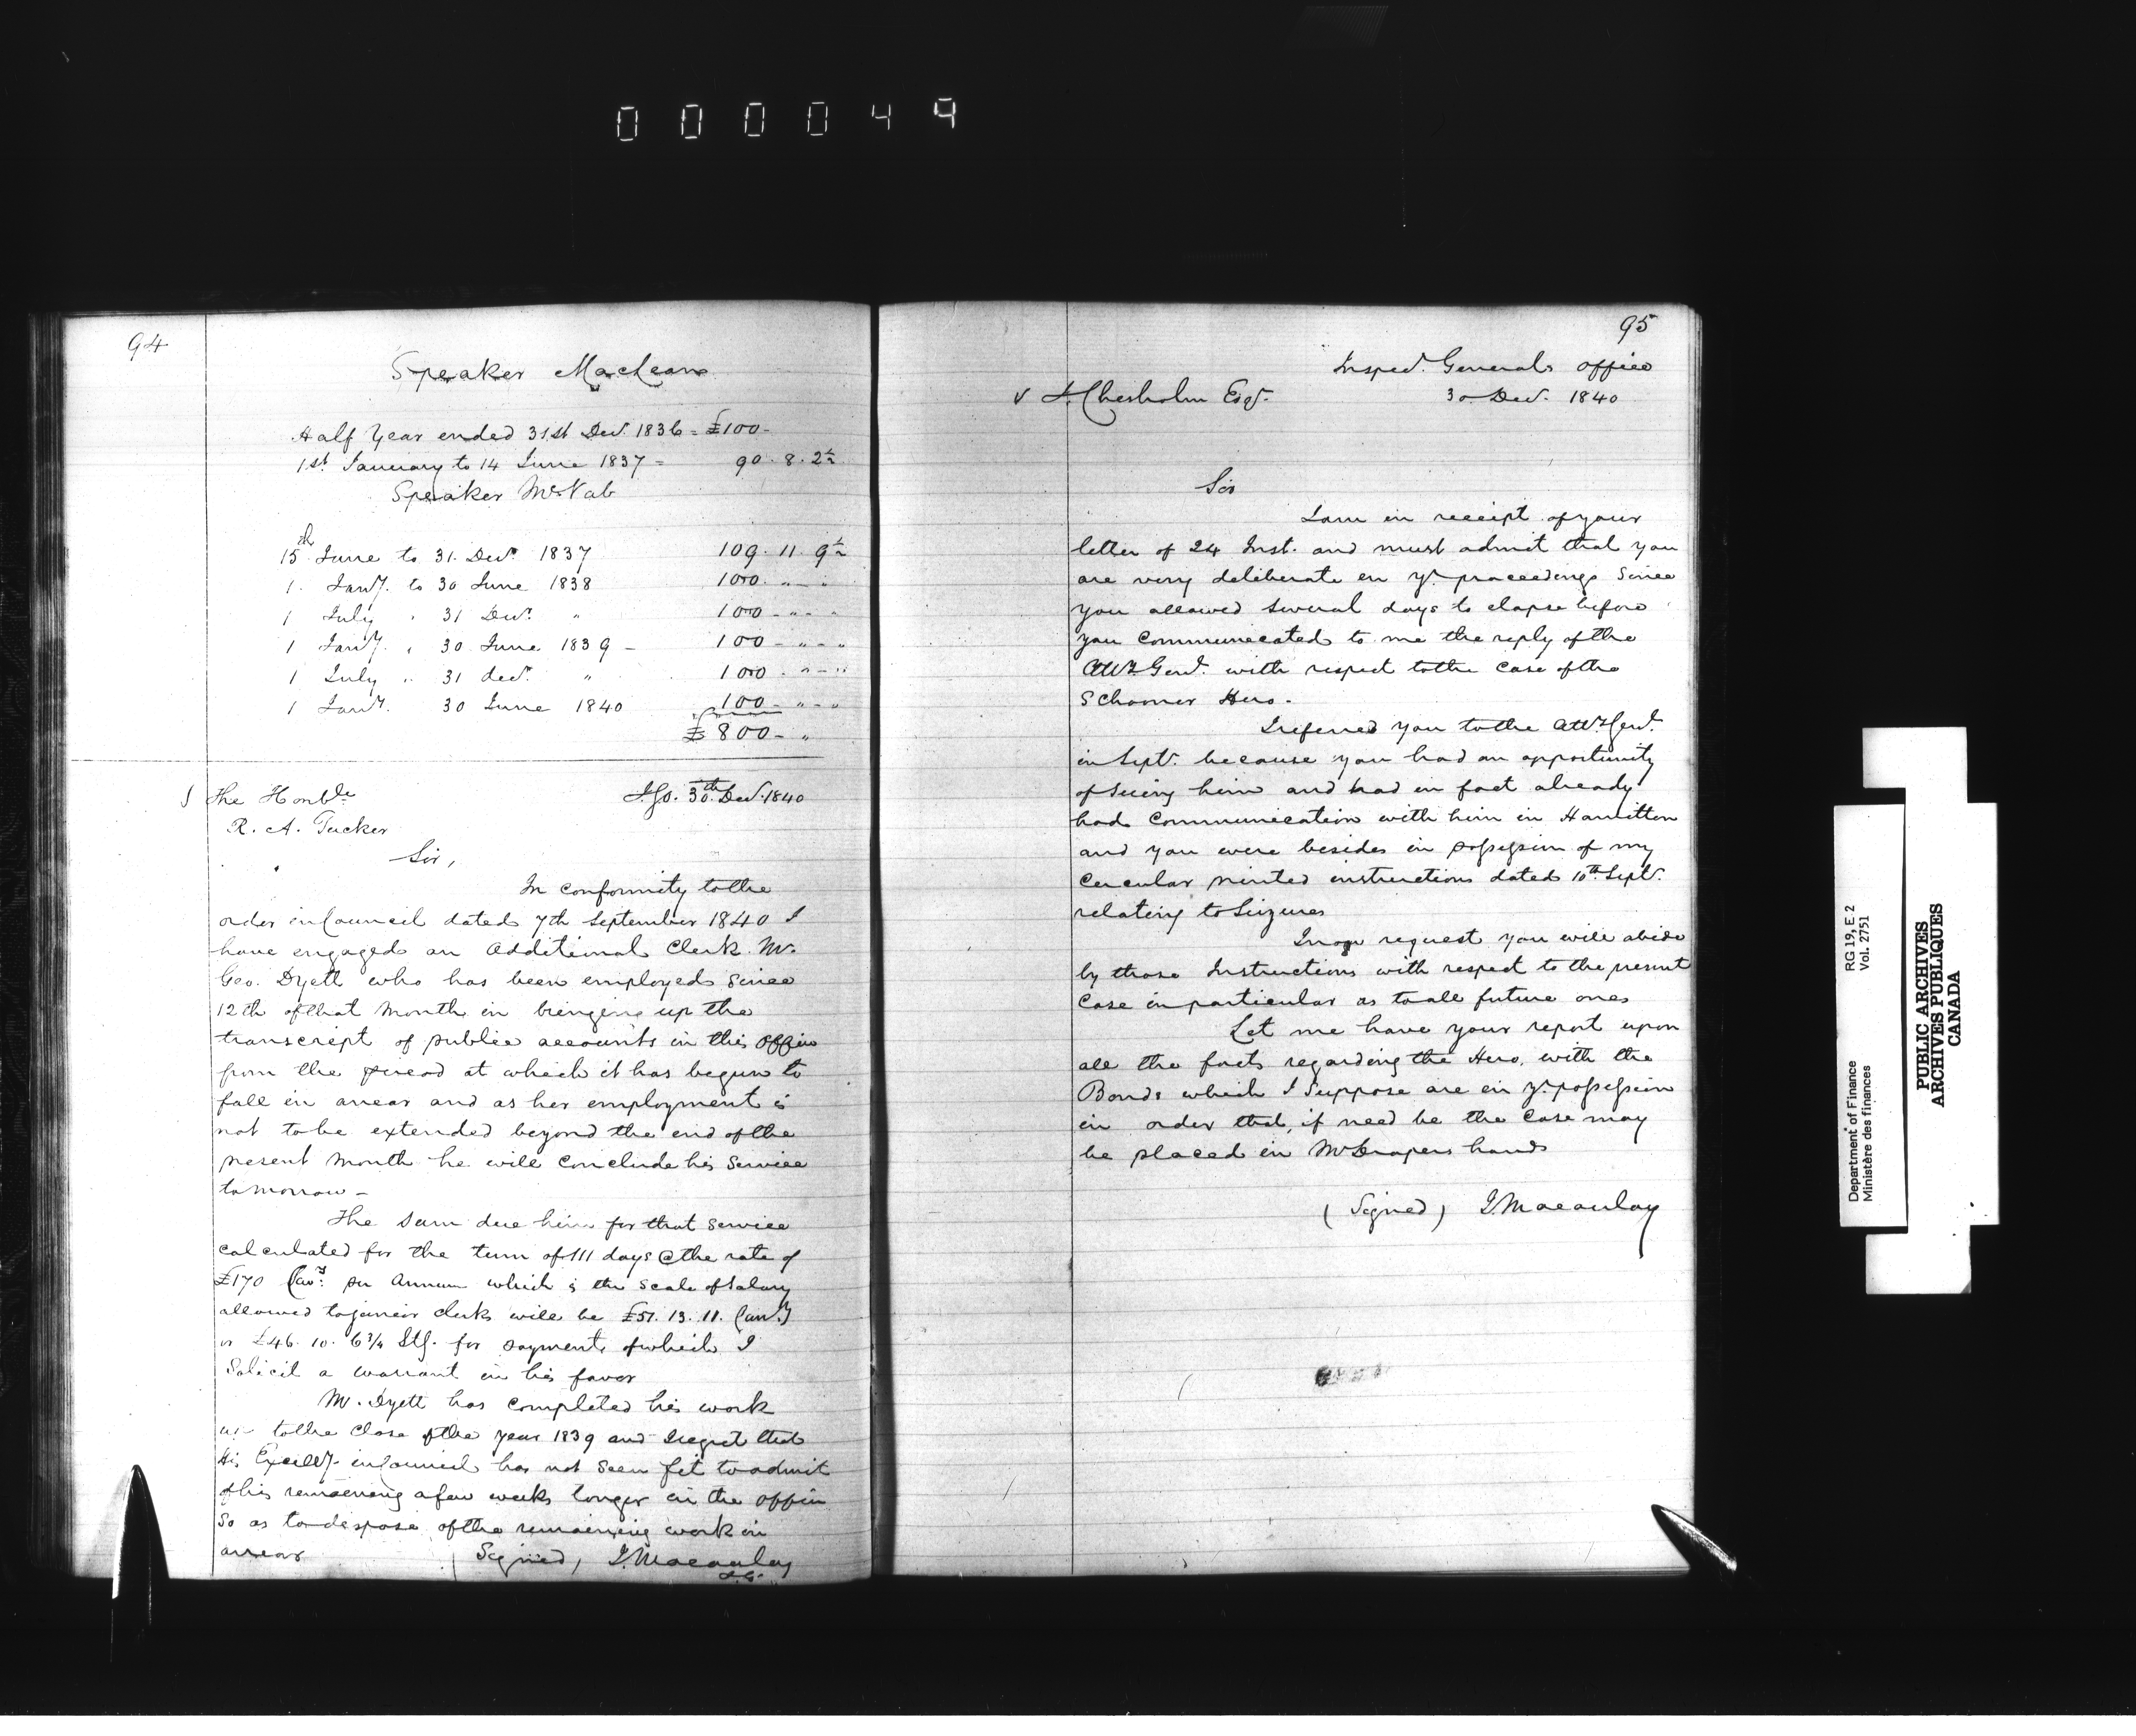 000049
94
Speaker MacLean
Half Year ended 31st Decr. 1836 = £100-
1st January to 14 June 1837 = 90. 8. 2½
Speaker McNab
15th June to 31. Decr 1837 109. 11. 9½
1. Jany. to 30 June 1838 100. " - "
1 July " 31 Decr. " 100 - " - "
1 Jany. " 30 June 1839 - 100 - " - "
1 July " 31 decr. " 100 . " - "
1 Jany. 30 June 1840 100 - " - "
£ 800 - "
The Honble I.G.O. 30th Decr. 1840
R. A. Tucker
Sir,
In conformity to the
order in Council dated 7th September 1840 I
have engaged an Additional Clerk Mr.
Geo. Dyett who has been employed since
12th of that Month in bringing up the
transcript of public accounts in this office
from the period at which it has begun to
fall in arrear and as her employment is
not to be extended beyond the end of the
present Month he will Conclude his Service
tomorrow -
The Sum due him for that Service
calculated for the term of 111 days @ the rate of
£170 Cury. per Annum which is the scale of Salary
allowed to junior clerks will be £51. 13. 11. Curry
or £46. 10. 6¾ Stg. for payment of which I
Solicit a warrant in his favor
Mr. Dyett has completed his work
up to the close of the year 1839 and I regret that
His Excelly. in Council has not Seen fit to admit
of his remaining a few weeks longer in the office
So as to dispose of the remaining work in
arrear (Signed) J. Macaulay
I.G.
95
Inspecr. Generals Office
Chisholm Esqr. 30 Decr. 1840
Sir
I am in receipt of your
letter of 24 Inst. and must admit that you
are very deliberate in yr. proceedings Since
you allowed Several days to elapse before
you Communicated to me the reply of the
Atty. Genl. with respect to the Case of the
Schooner Hero.
I referred you to the Atty Genl.
in Septr. because you had an opportunity
of seeing him and had in fact already
had Communication with him in Hamilton
and you were besides in possession of my
Circular printed instructions dated 10th Septr.
relating to Seizures
request you will abide
by those Instructions with respect to the present
Case in particular as to all future ones
Let me have your report upon
all the facts regarding the Hero, with the
Bonds which I Suppose are in yr. possession
in order that, if need be the Case may
be placed in Mr Drapers hands
(Signed) J. Macaulay
RG 19, E 2
Vol. 2751
Department of Finance
Ministère des finances
PUBLIC ARCHIVES
ARCHIVES PUBLIQUES
CANADA